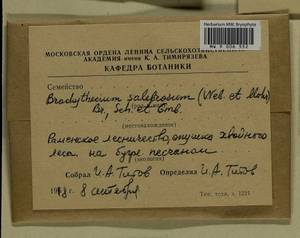 Herbarium MW, Bryophyta
МОСКОВСКАЯ ОРДЕНА ЛЕНИНА СЕЛЬСКОХОЗЯЙСТВЕННАЯ
АКАДЕМИЯ имени К. А. ТИМИРЯЗЕВА
КАФЕДРА БОТАНИКИ
Семейство
Brachythecium salebrosum (Web. et Mohr)
Br., Sch. et Gmb.
(местонахождение)
Раменское лесничество, опушка хвойного
леса на бугре песчаном.
(экология)
Собрал И.А. Титов Определил И.А. Титов
8 сентября